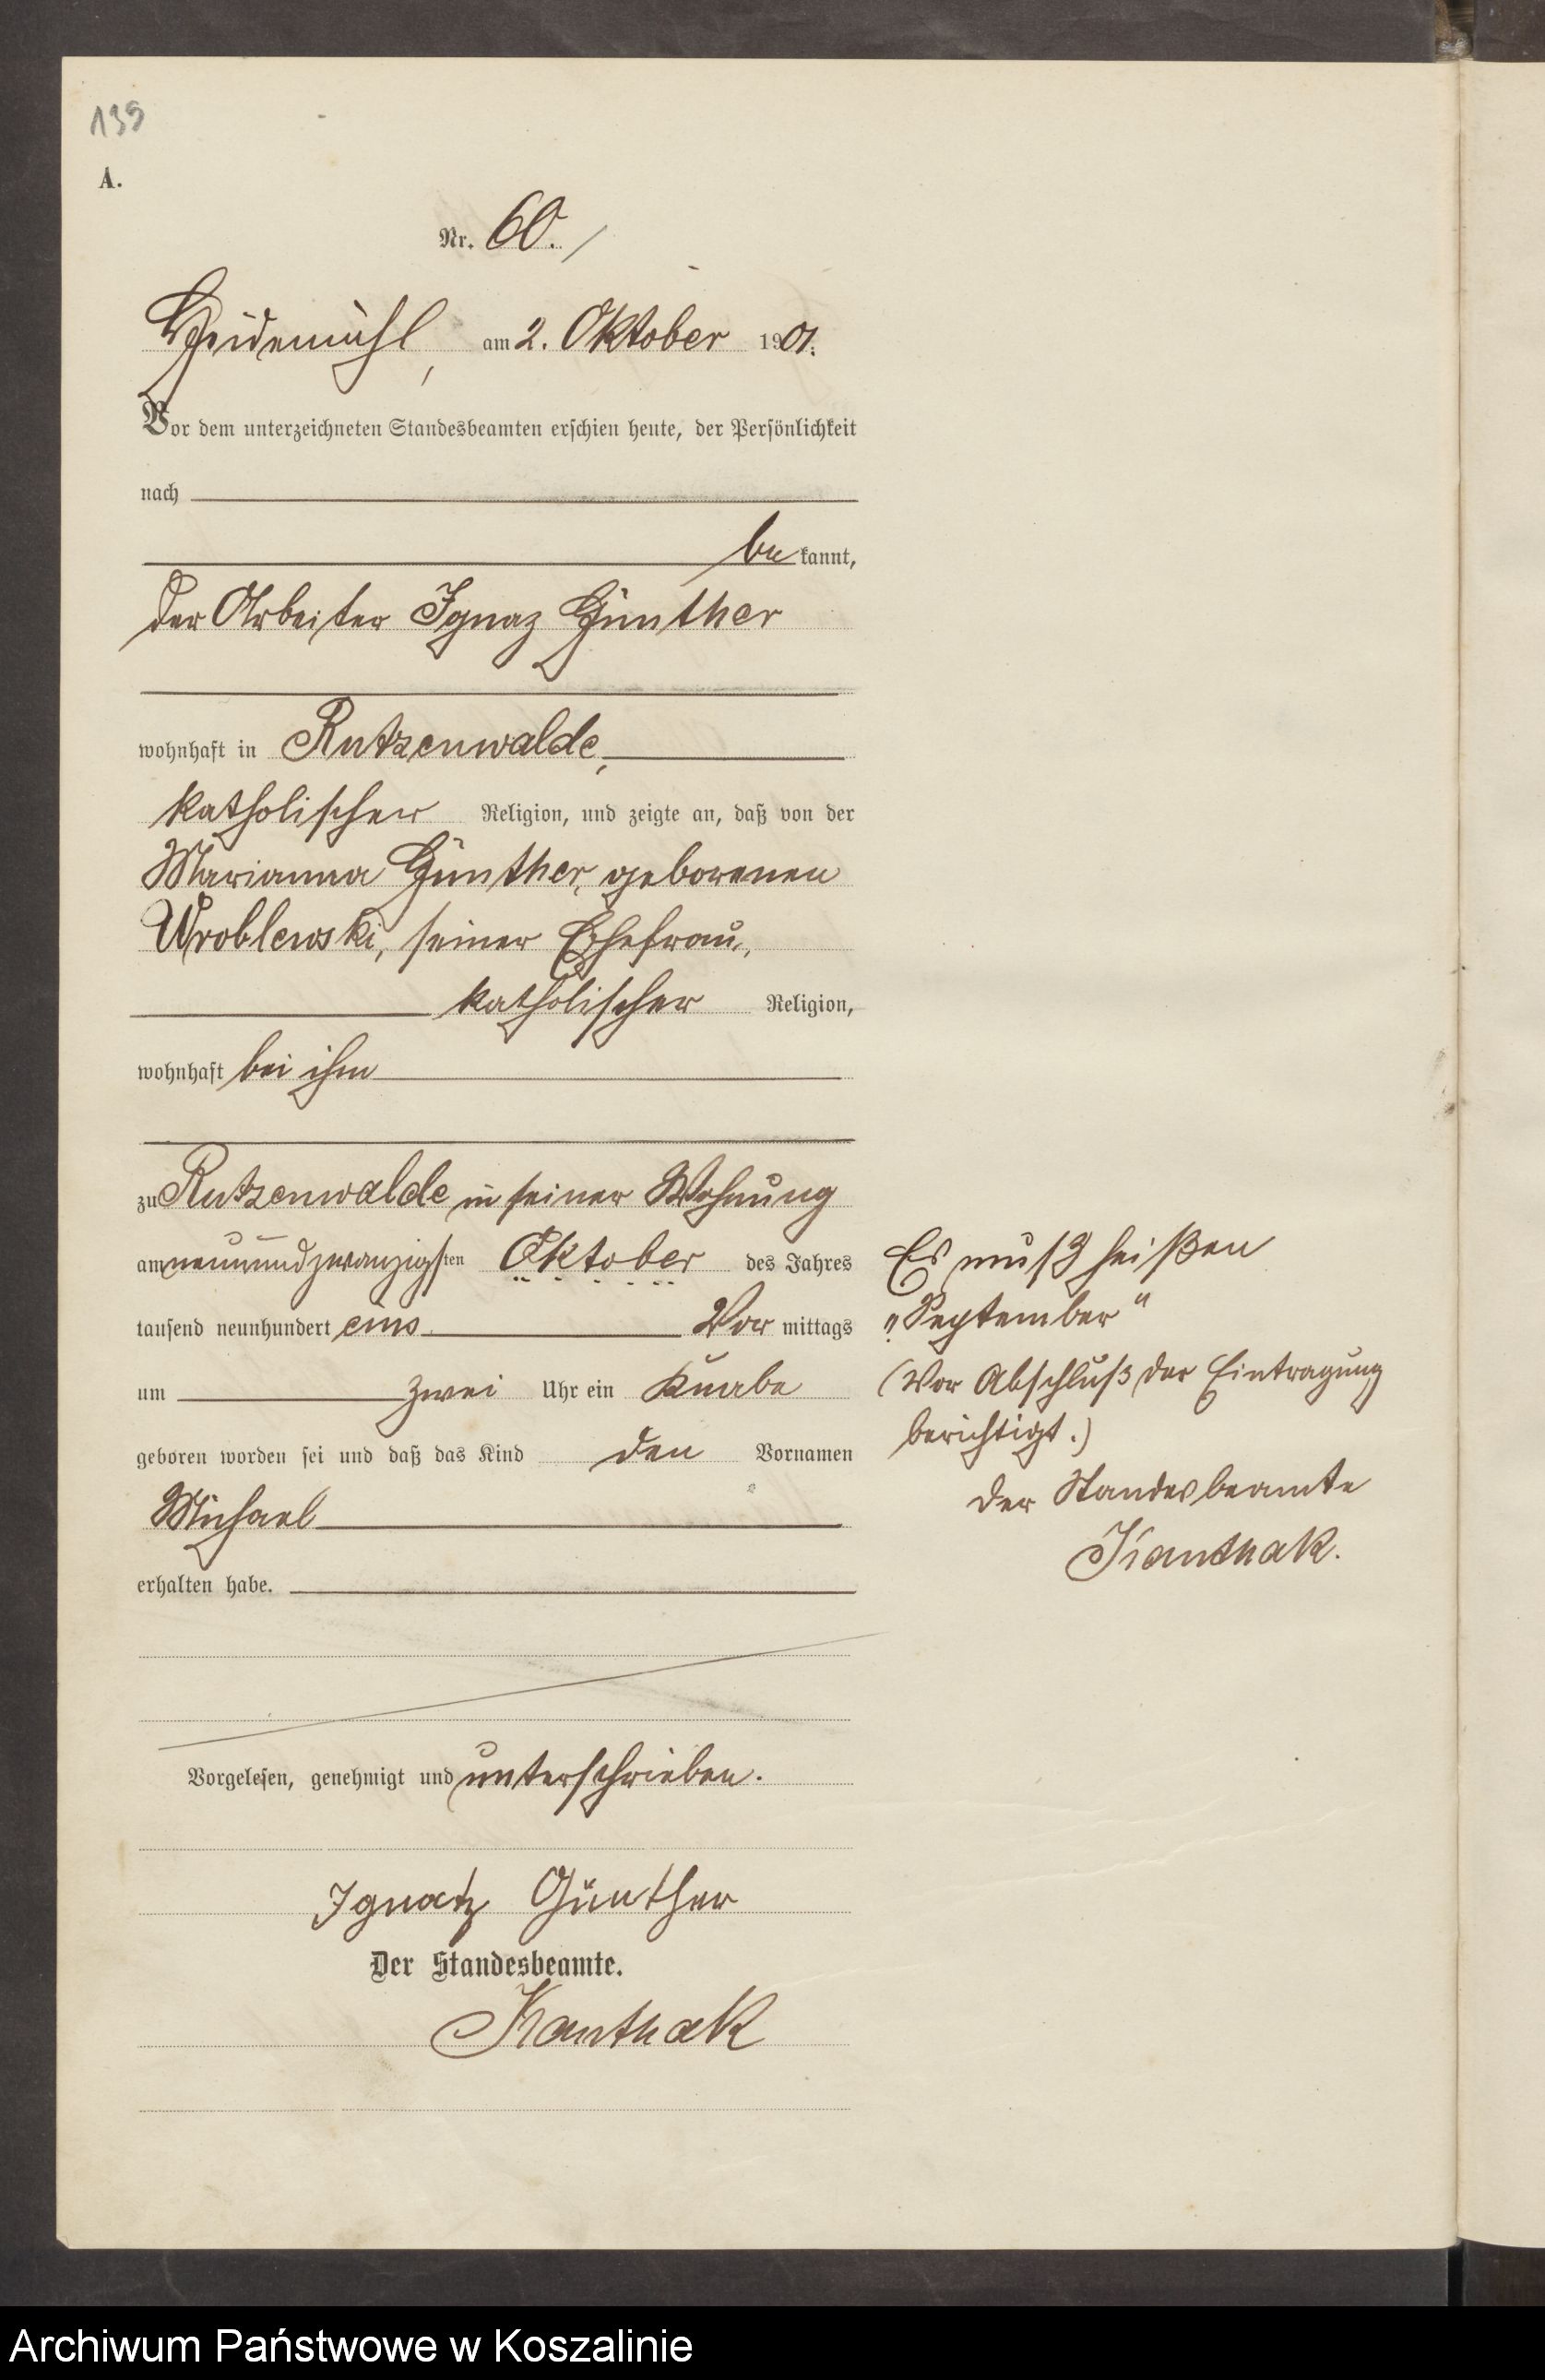 139
A.
Nr. 60.
Heidemühl, am 2. Oktober 1901.
Vor dem unterzeichneten Standesbeamten erschien heute, der Persönlichkeit
nach
bekannt,
der Arbeiter Ignaz Günther
wohnhaft in Rutzenwalde,
katholischer Religion, und zeigte an, daß von der
Marianna Günther, geborenen
Wroblewski, seiner Ehefrau,
katholischer Religion,
wohnhaft bei ihm
zu Rutzenwalde in seiner Wohnung
am neunundzwanzigsten Oktober des Jahres
tausend neunhundert eins Vormittags
um zwei Uhr ein Knabe
geboren worden sei und daß das Kind den Vornamen
Michael
erhalten habe.
Es muß heißen
„September“
(Vor Abschluß der Eintragung
berichtigt.)
Der Standesbeamte
Kanthak.
Vorgelesen, genehmigt und unterschrieben.
Ignatz Günther
Der Standesbeamte.
Kanthak
Archiwum Państwowe w Koszalinie